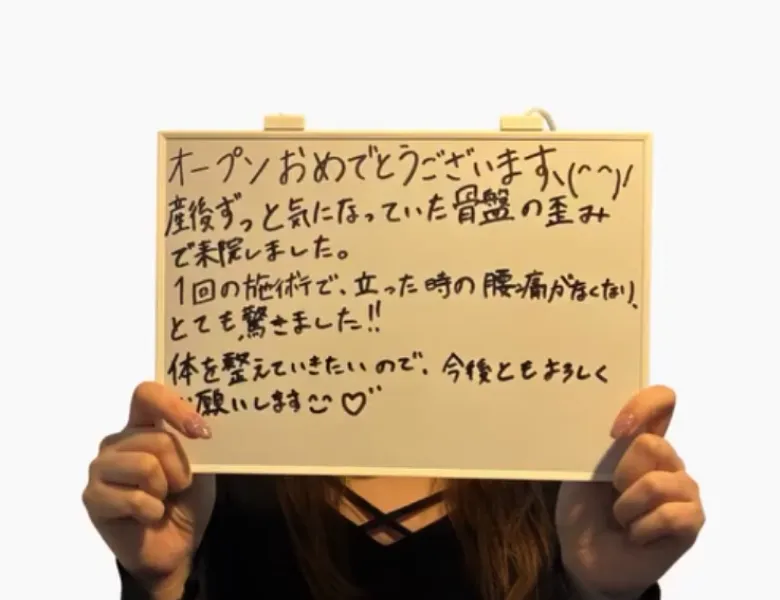 オープンおめでとうございます\(^^)/
産後ずっと気になっていた骨盤の歪み
で来院しました。
1回の施術で、立った時の腰痛がなくなり、
とても驚きました!!
体を整えていきたいので、今後ともよろしく
お願いします◡̈♡